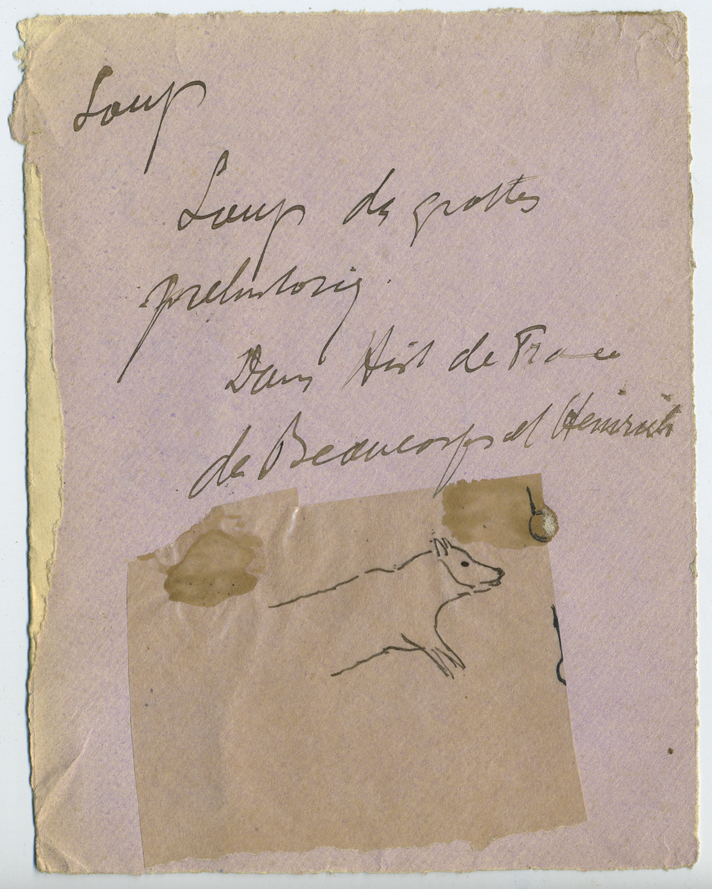 Loup
Loup des grottes
prehistoriq.
Dans Hist de France
de Beaucorps et Heinrich